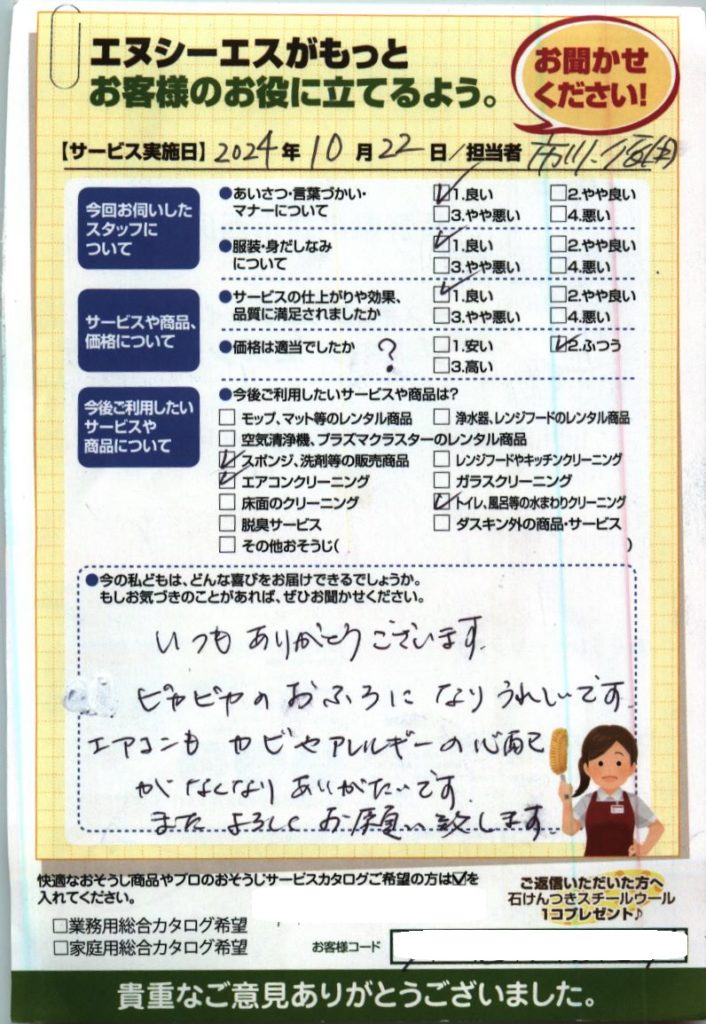 エヌシーエスがもっと
お客様のお役に立てるよう。
お聞かせ
ください!
【サービス実施日】2024年10月22日/担当者
今回お伺いした
スタッフに
ついて
●あいさつ・言葉づかい・
マナーについて
☑1.良い □2.やや良い
□3.やや悪い □4.悪い
●服装・身だしなみ
について
☑1.良い □2.やや良い
□3.やや悪い □4.悪い
サービスや商品、
価格について
●サービスの仕上がりや効果、
品質に満足されましたか
☑1.良い □2.やや良い
□3.やや悪い □4.悪い
●価格は適当でしたか ?
□1.安い ☑2.ふつう
□3.高い
今後ご利用したい
サービスや
商品について
●今後ご利用したいサービスや商品は?
□モップ、マット等のレンタル商品 □浄水器、レンジフードのレンタル商品
□空気清浄機、プラズマクラスターのレンタル商品
☑スポンジ、洗剤等の販売商品 □レンジフードやキッチンクリーニング
☑エアコンクリーニング □ガラスクリーニング
□床面のクリーニング ☑トイレ、風呂等の水まわりクリーニング
□脱臭サービス □ダスキン外の商品・サービス
□その他おそうじ( )
●今の私どもは、どんな喜びをお届けできるでしょうか。
もしお気づきのことがあれば、ぜひお聞かせください。
いつもありがとうございます。
ピカピカのおふろになりうれしいです。
エアコンもカビやアレルギーの心配
がなくなりありがたいです。
またよろしくお願い致します。
快適なおそうじ商品やプロのおそうじサービスカタログご希望の方は☑を
入れてください。
□業務用総合カタログ希望
□家庭用総合カタログ希望
ご返信いただいた方へ
石けんつきスチールウール
1コプレゼント♪
お客様コード
貴重なご意見ありがとうございました。